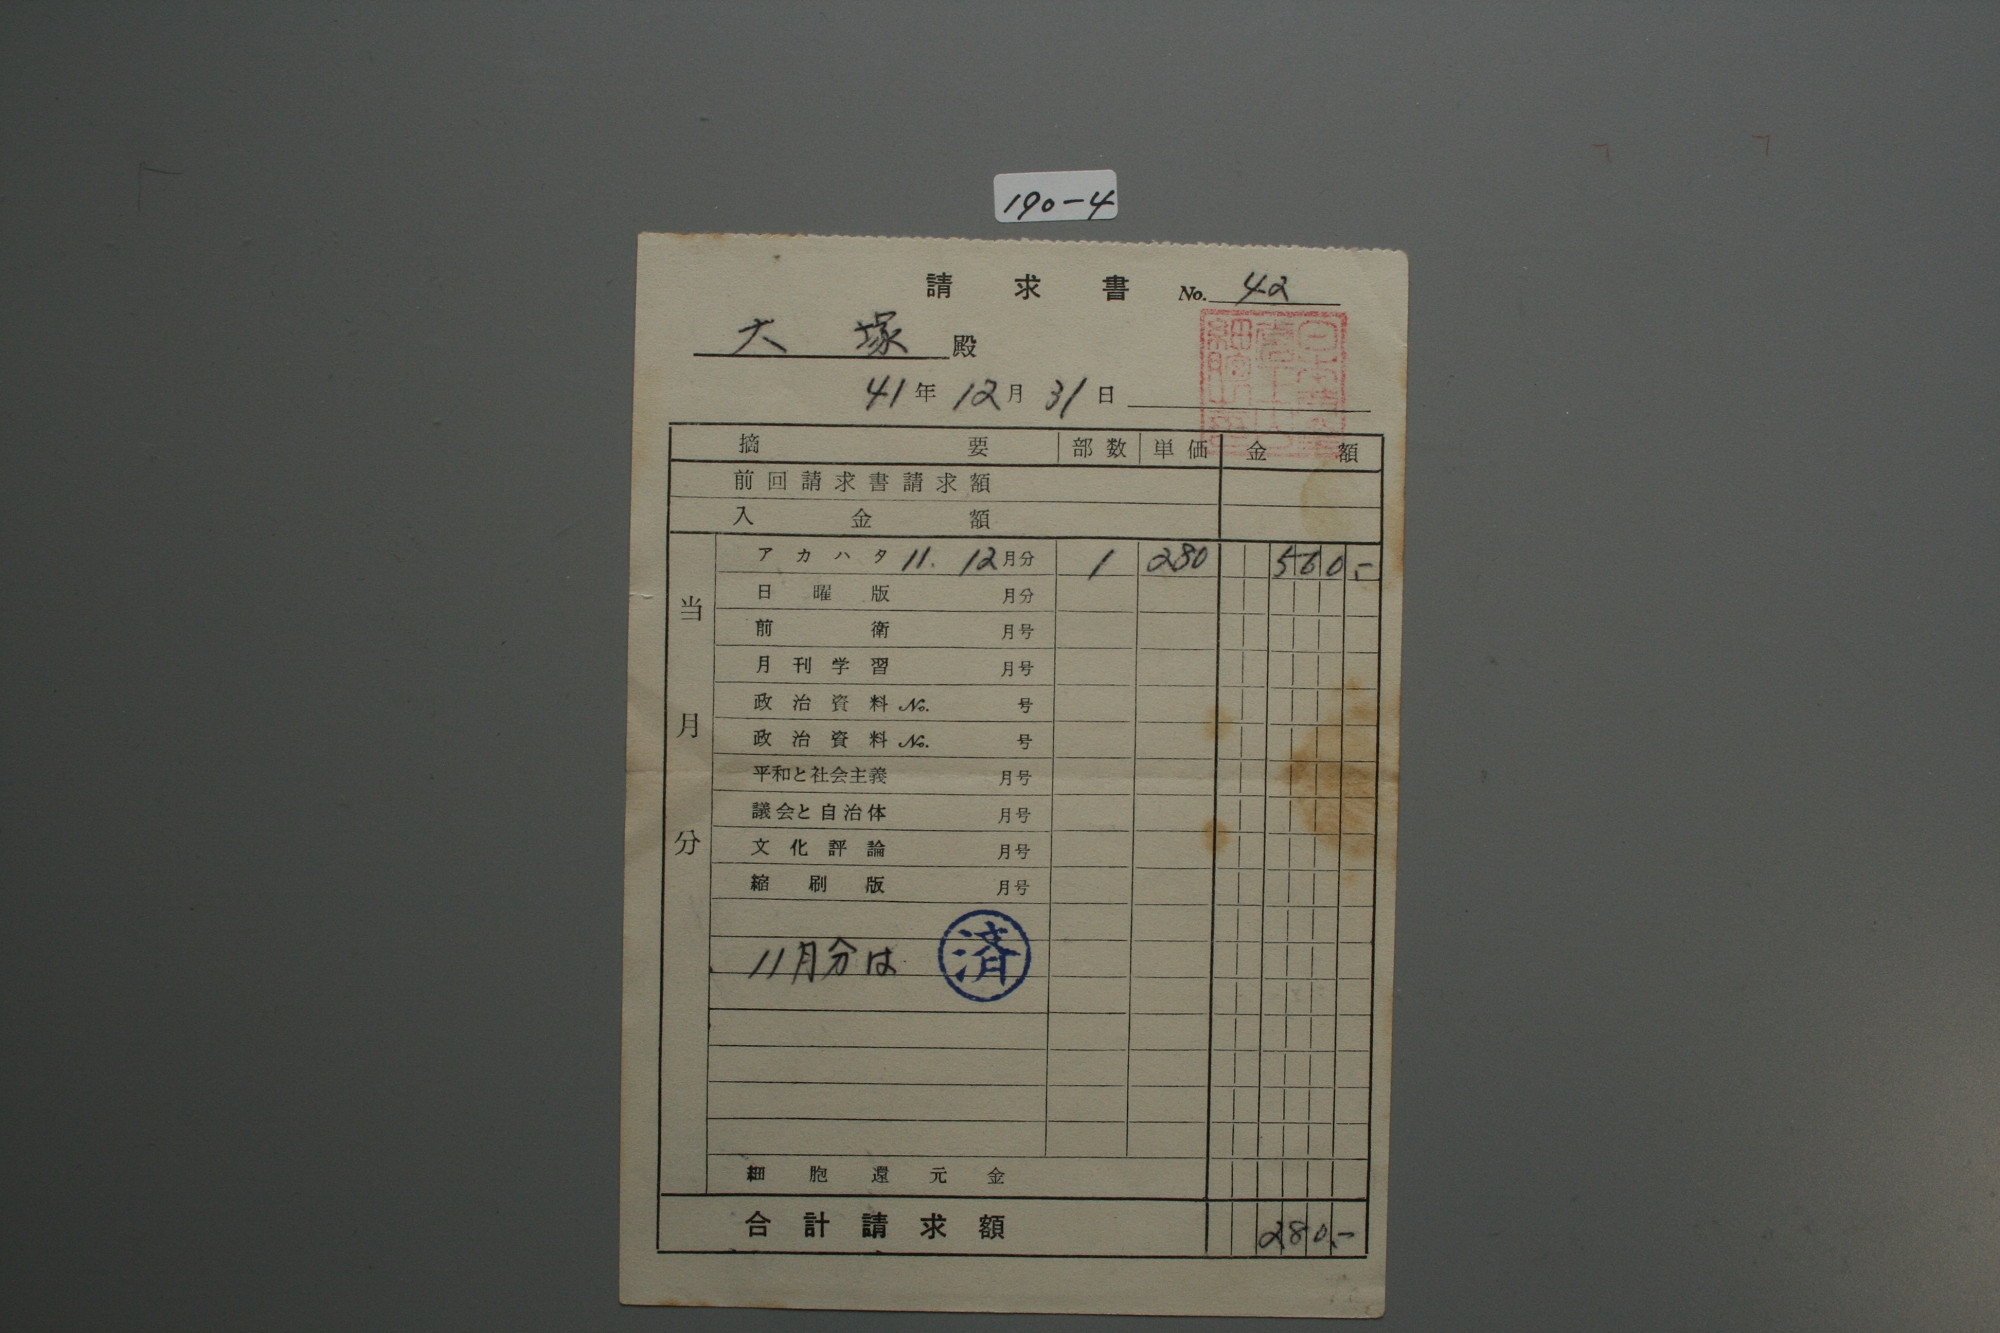 190-4
請求書 No. 42
大塚殿
41年12月31日
摘要 部数 単価 金額
前回請求書請求額
入金額
当月分
アカハタ 11. 12月分 1 280 560.-
日曜版 月分
前衛 月号
月刊学習 月号
政治資料 No. 号
政治資料 No. 号
平和と社会主義 月号
議会と自治体 月号
文化評論 月号
縮刷版 月号
11月分は 済
細胞還元金
合計請求額 280.-